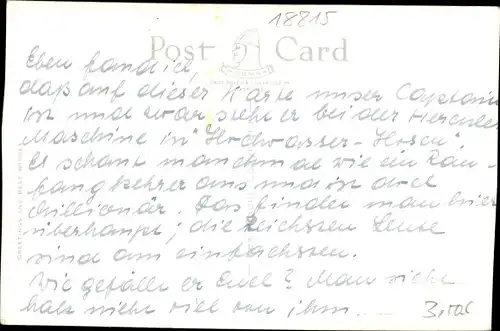 18815
Post Card
Eben fand ich,
daß auf dieser Karte unser Captain
ist und zwar steht er bei der Hercules
Maschine in "Hochwasser-Hosen".
Er schaut manchmal wie ein Rau-
fangkehrer aus und ist doch
Millionär. Das findet man hier
überhaupt; die reichsten Leute
sind am einfachsten.
Wie gefällt er Euch? Man sieht
halt nicht viel von ihm....